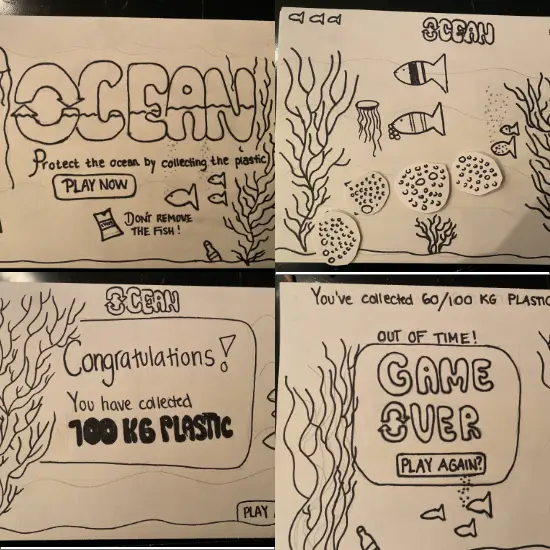 OCEAN
Protect the ocean by collecting the plastic
PLAY NOW
DON'T REMOVE
THE FISH!
OCEAN
OCEAN
Congratulations!
You have collected
100 KG PLASTIC
PLAY
You've collected 60/100 KG PLASTIC
OUT OF TIME!
GAME
OVER
PLAY AGAIN?